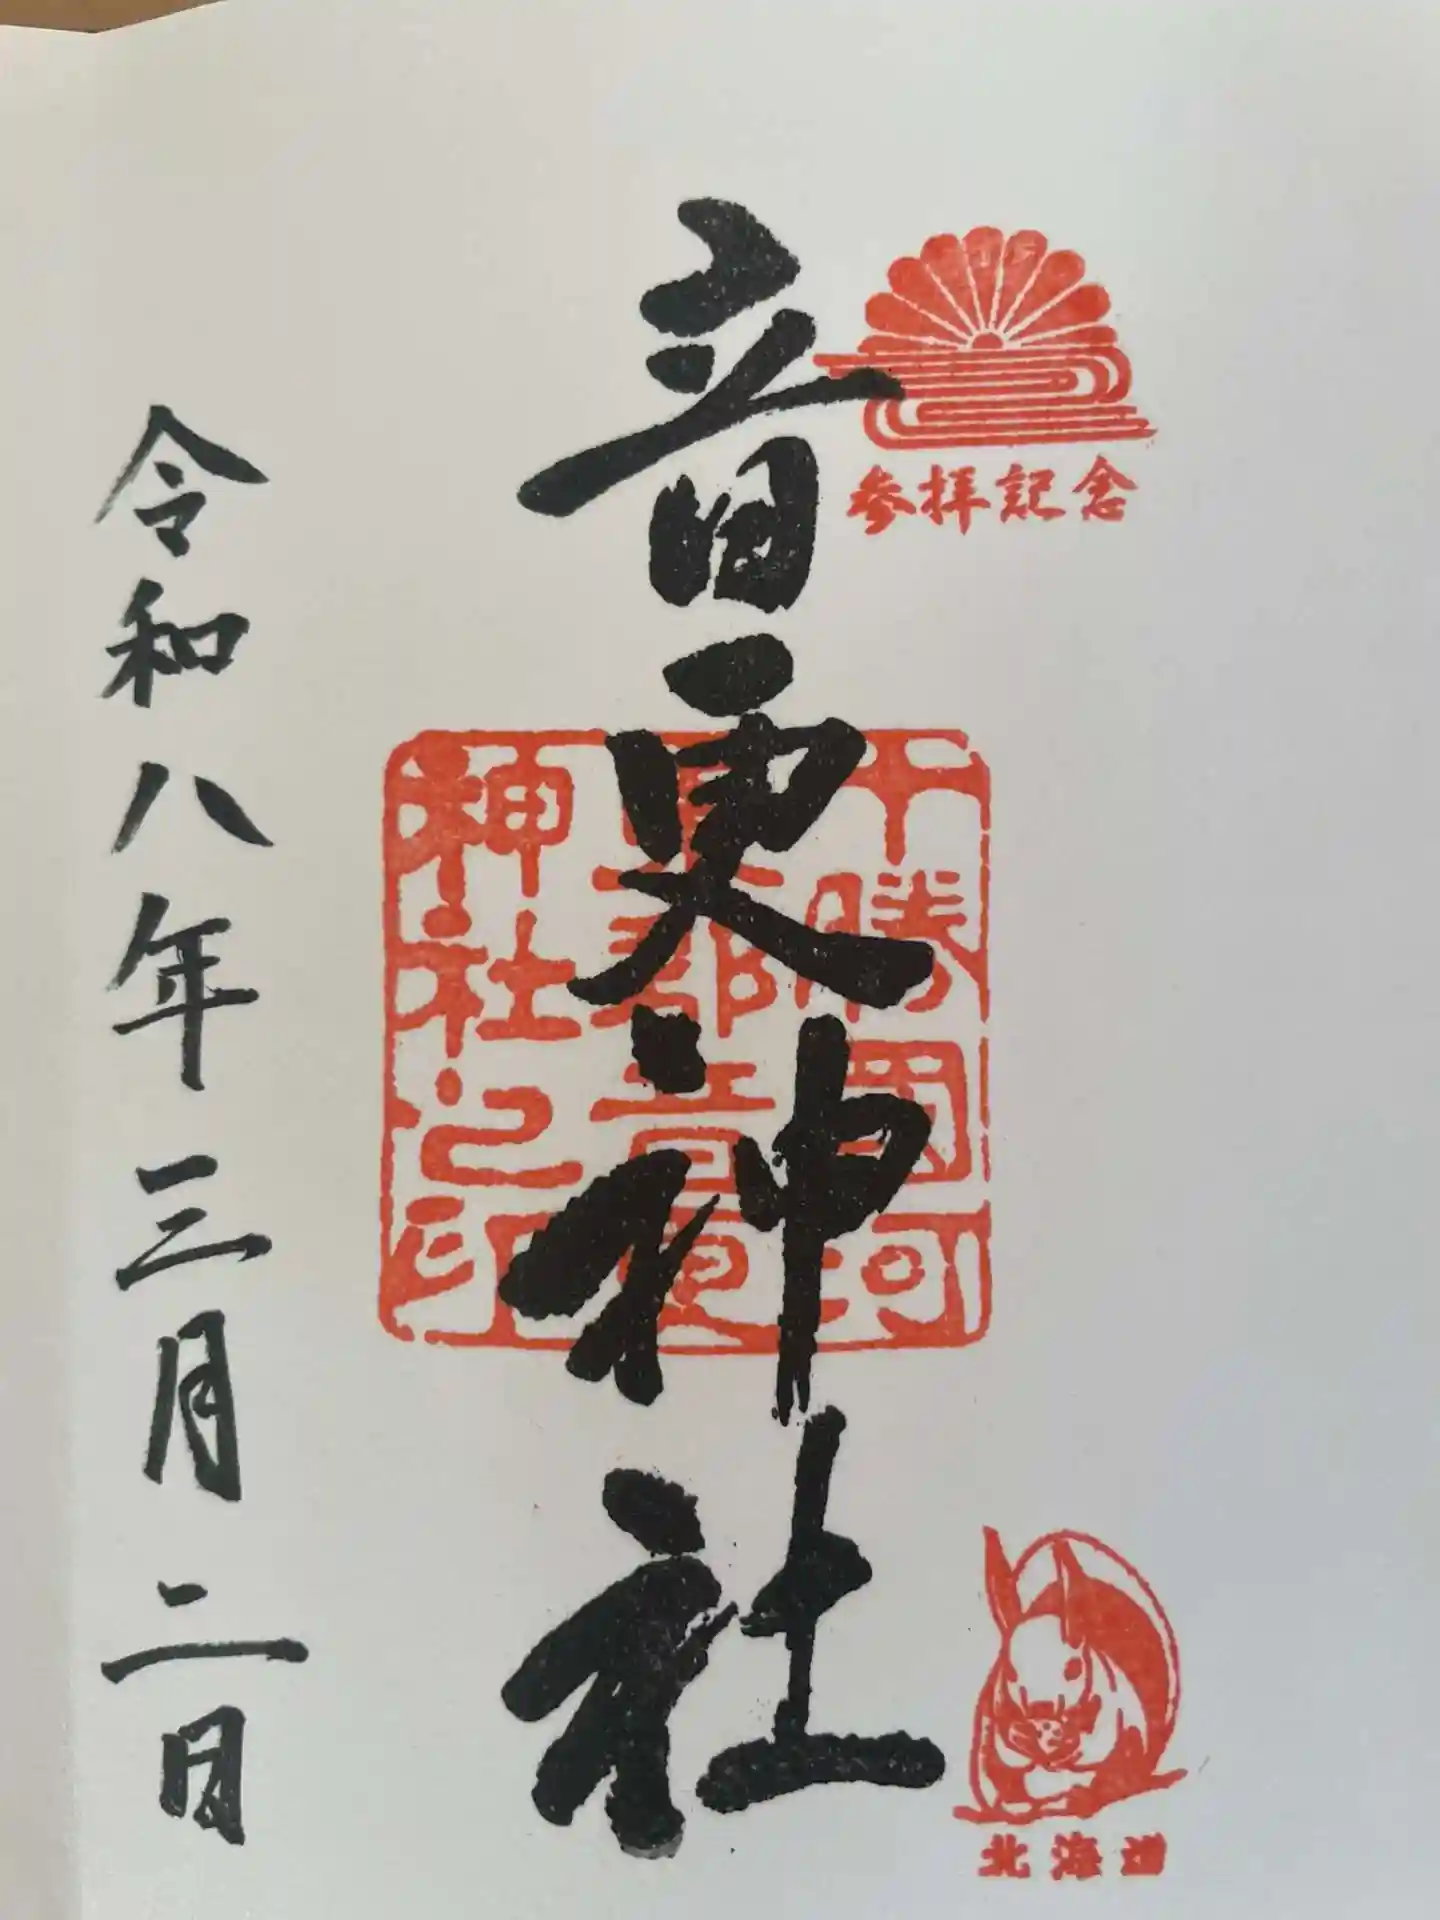 参拝記念
音更神社
十勝國河
東郡音更
神社之印
北海道
令和八年三月二日